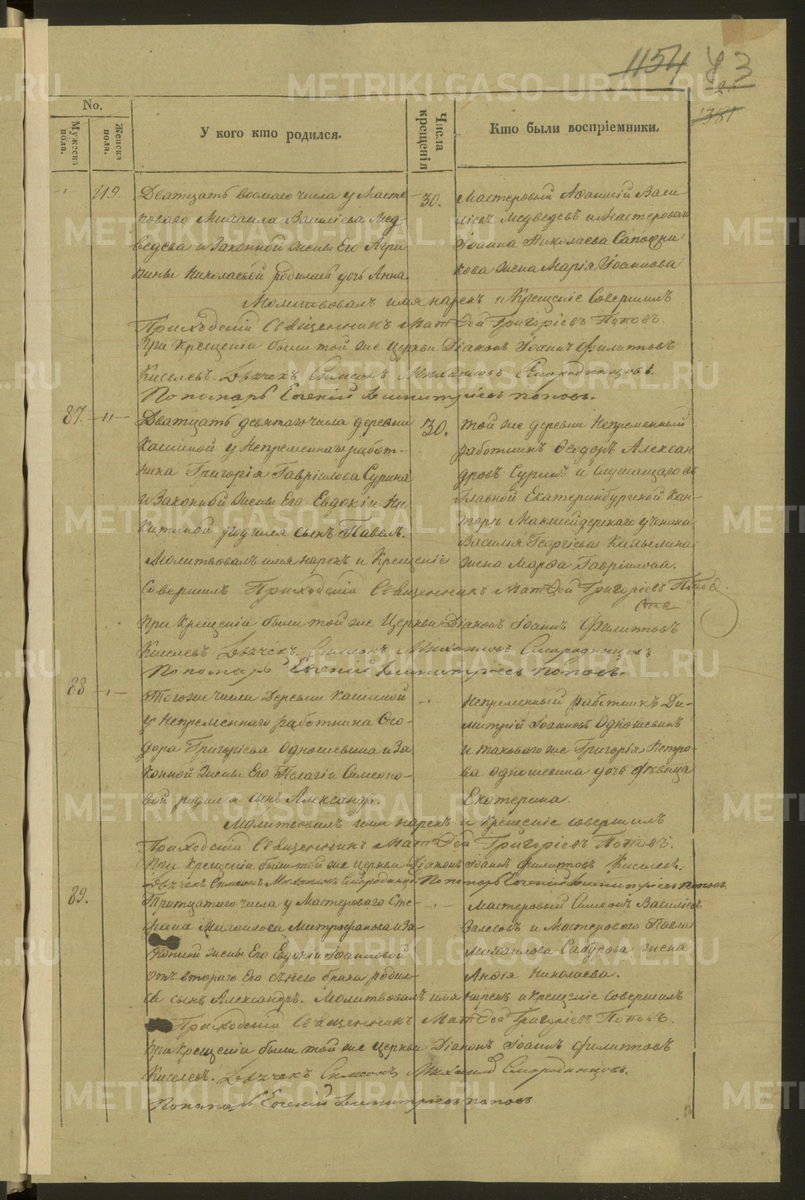 1154 73
381
No.
Мужеска пола.
Женска пола.
У кого кто родился.
Числа крещенія
Кто были воспріемники.
119
Дватцать восмаго числа у Масте-
роваго Михаила Василіева Мед-
ведева и Законной Жены Его Агри-
пины Николаевой родилась дочь Анна.
30.
Мастеровый Афанасій Васи-
ліевъ Медведевъ и Мастероваго
Іоанна Николаева Сапожни-
кова жена Марія Іоаннова
Молитвовалъ имя нарекъ и Крещеніе Совершилъ
Приходскій Священникъ Матѳей Григоріевъ Поповъ.
При Крещеніи были той же Церкви Діаконъ Іоаннъ Филиповъ
Киселевъ. Дьячекъ Симеонъ Михаиловъ Смородинцовъ.
Пономарь Евгеній Димитріевъ поповъ.
87.
Дватцать девятаго числа деревни
Кашиной у Непременнаго работ-
ника Григорія Гавріилова Сурина
и Законной Жены Его Евдокіи Ни-
китиной родился сынъ Павелъ.
30.
той же деревни Непременный
работникъ Ѳеодоръ Алексан-
дровъ Суринъ и служащаго въ
Главной Екатеринбургской Кан-
торѣ ученика
Василія Георгіева
жена Марфа Гавріилова.
Молитвовалъ имя нарекъ и Крещеніе
Совершилъ Приходскій Священникъ Матѳей Григоріевъ Поповъ
При Крещеніи были той же Церкви Діаконъ Іоаннъ Филиповъ
Киселевъ Дьячекъ Симеонъ Михаиловъ Смородинцовъ
Пономарь Евгеній Димитріевъ поповъ.
88
Тогоже числа Деревни Кашиной
у Непременнаго работника Ѳео-
дора Григоріева Одношевина и За-
конной Жены Его Пелагіи Симеоно-
вой родился сынъ Александръ
Непременный работникъ Ди-
митрій Іоанновъ Одношевинъ
и таковаго же Григорія Петро-
ва Одношевина дочь девица
Екатерина.
Молитвовалъ имя нарекъ и Крещеніе совершилъ
Приходскій Священникъ Матѳей Григоріевъ Поповъ.
При Крещеніи были той же Церкви Діаконъ Іоаннъ Филиповъ Киселевъ.
Дьячекъ Симеонъ Михаиловъ Смородинцовъ Пономарь Евгеній Димитріевъ поповъ
89.
Тритцатаго числа у Мастероваго Сте-
фана Митрофанова и За-
конной жены Его Евдокіи Іоанновой
отъ втораго Его съ нею брака родил-
ся сынъ Александръ.
Мастеровый Симеонъ Василіевъ
Залесовъ и Мастероваго Павла
Михаилова Сабурова жена
Николаева.
Молитвовалъ имя нарекъ и крещеніе совершилъ
Приходскій Священникъ Матѳей Григоріевъ Поповъ.
При крещеніи были той же церкви Діаконъ Іоаннъ Филиповъ
Киселевъ. Дьячекъ Симеонъ Михаиловъ Смородинцовъ.
Пономарь Евгеній Димитріевъ поповъ
METRIKI.GASO-URAL.RU